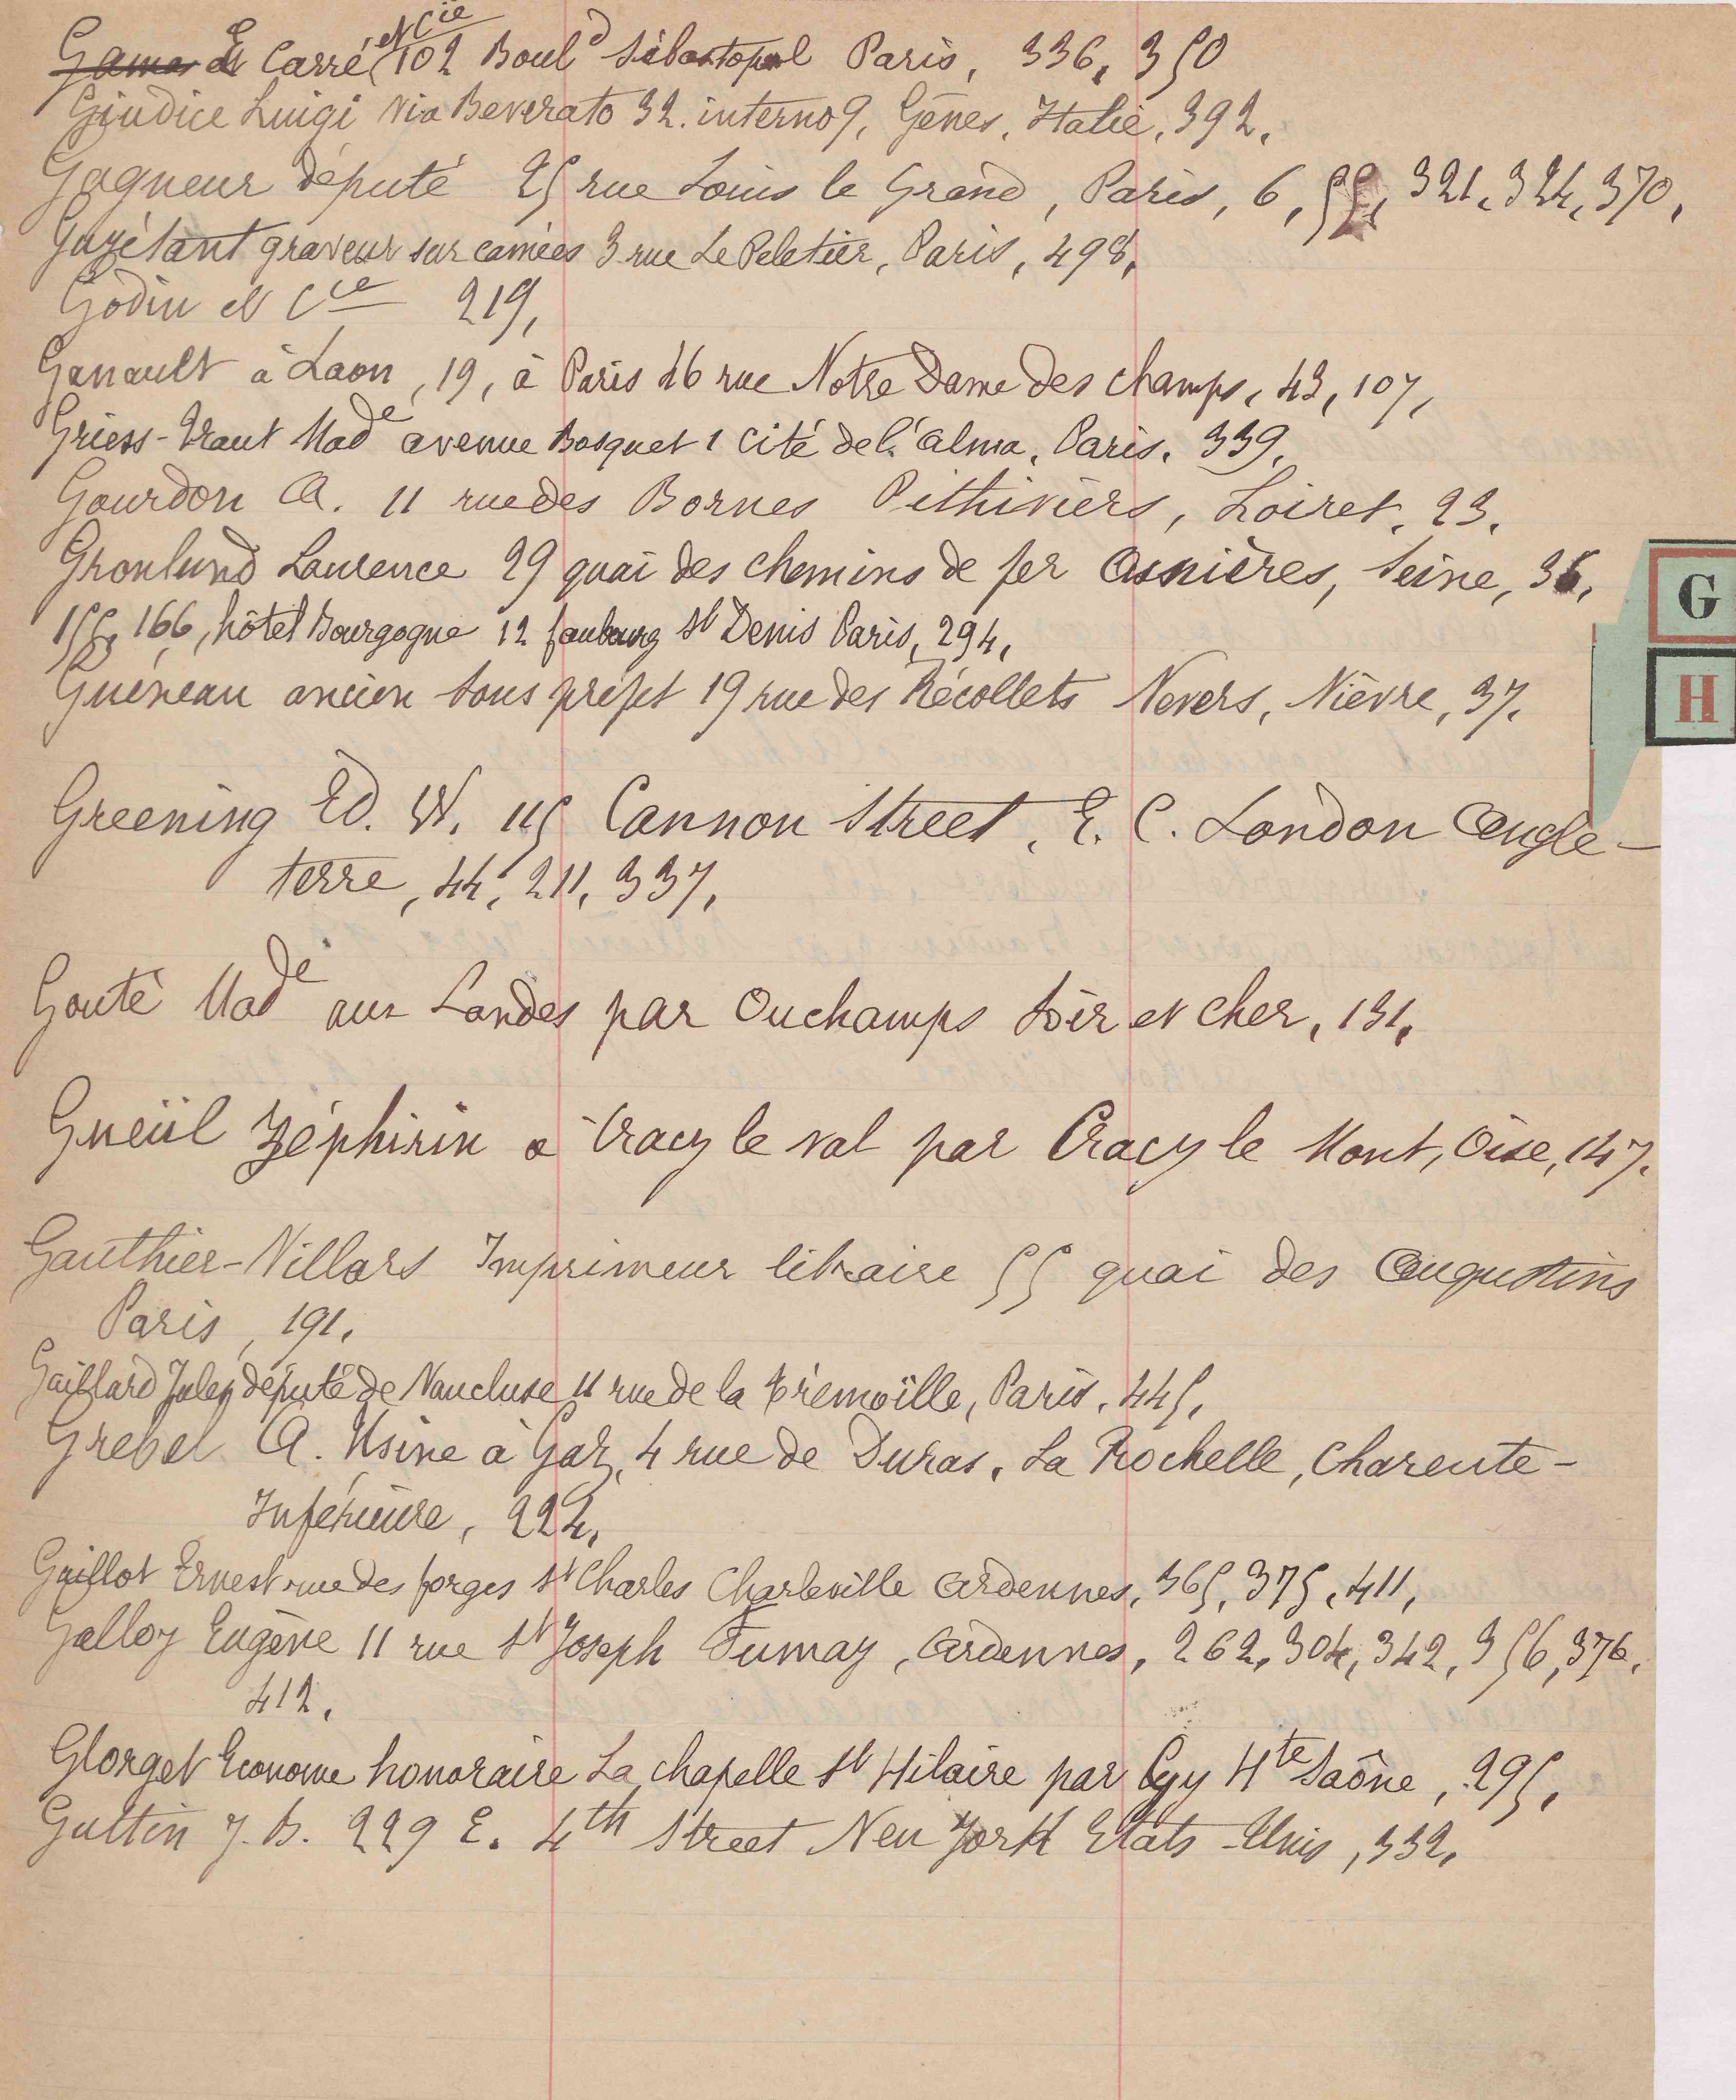 Games et Carré et Cie 102 Bould Sébastopol Paris, 336, 350
Giudice Luigi via Beverato 32. interno 9, Gênes, Italie, 392,
Gagneur député 25 rue Louis le Grand, Paris, 6, 55, 321, 324, 370,
Gazétant graveur sur camées 3 rue Le Peletier, Paris, 498,
Godin et Cie 219,
Ganault à Laon, 19, à Paris 16 rue Notre Dame des champs, 43, 107,
Griess-Traut Made avenue Bosquet 1 cité de l'alma, Paris. 339,
Gourdon A. 11 rue des Bornes Pithiviers, Loiret, 23,
Gronlund Laurence 29 quai des chemins de fer Asnières, Seine, 36,
155, 166, hôtel Bourgogne 12 faubourg St Denis Paris, 294,
Guéneau ancien sous préfet 19 rue des Récollets Nevers, Nièvre, 37,
G
H
Greening Ed. W. 115 Cannon Street, E. C. London Angle-
terre, 44, 211, 337,
Gouté Made aux Landes par Ouchamps Loir et cher, 131,
Gueüil Zéphirin à Tracy le val par Tracy le Mont, Oise, 147.
Gauthier-Villars Imprimeur libraire 55 quai des Augustins
Paris, 191,
Gaillard Jules député de Vaucluse 11 rue de la Trémoïlle, Paris, 445,
Grebel A. Usine à Gaz, 4 rue de Duras, La Rochelle, Charente-
Inférieure, 224,
Guillot Ernest rue des forges St Charles Charleville Ardennes, 365, 375, 411,
Galloy Eugène 11 rue St Joseph Fumay, Ardennes, 262, 304, 342, 356, 376,
412,
Glorget Econome honoraire La chapelle St Hilaire par Gy Hte Saône, 295,
Guttin J. B. 229 E. 4th Street New York Etats-Unis, 332,